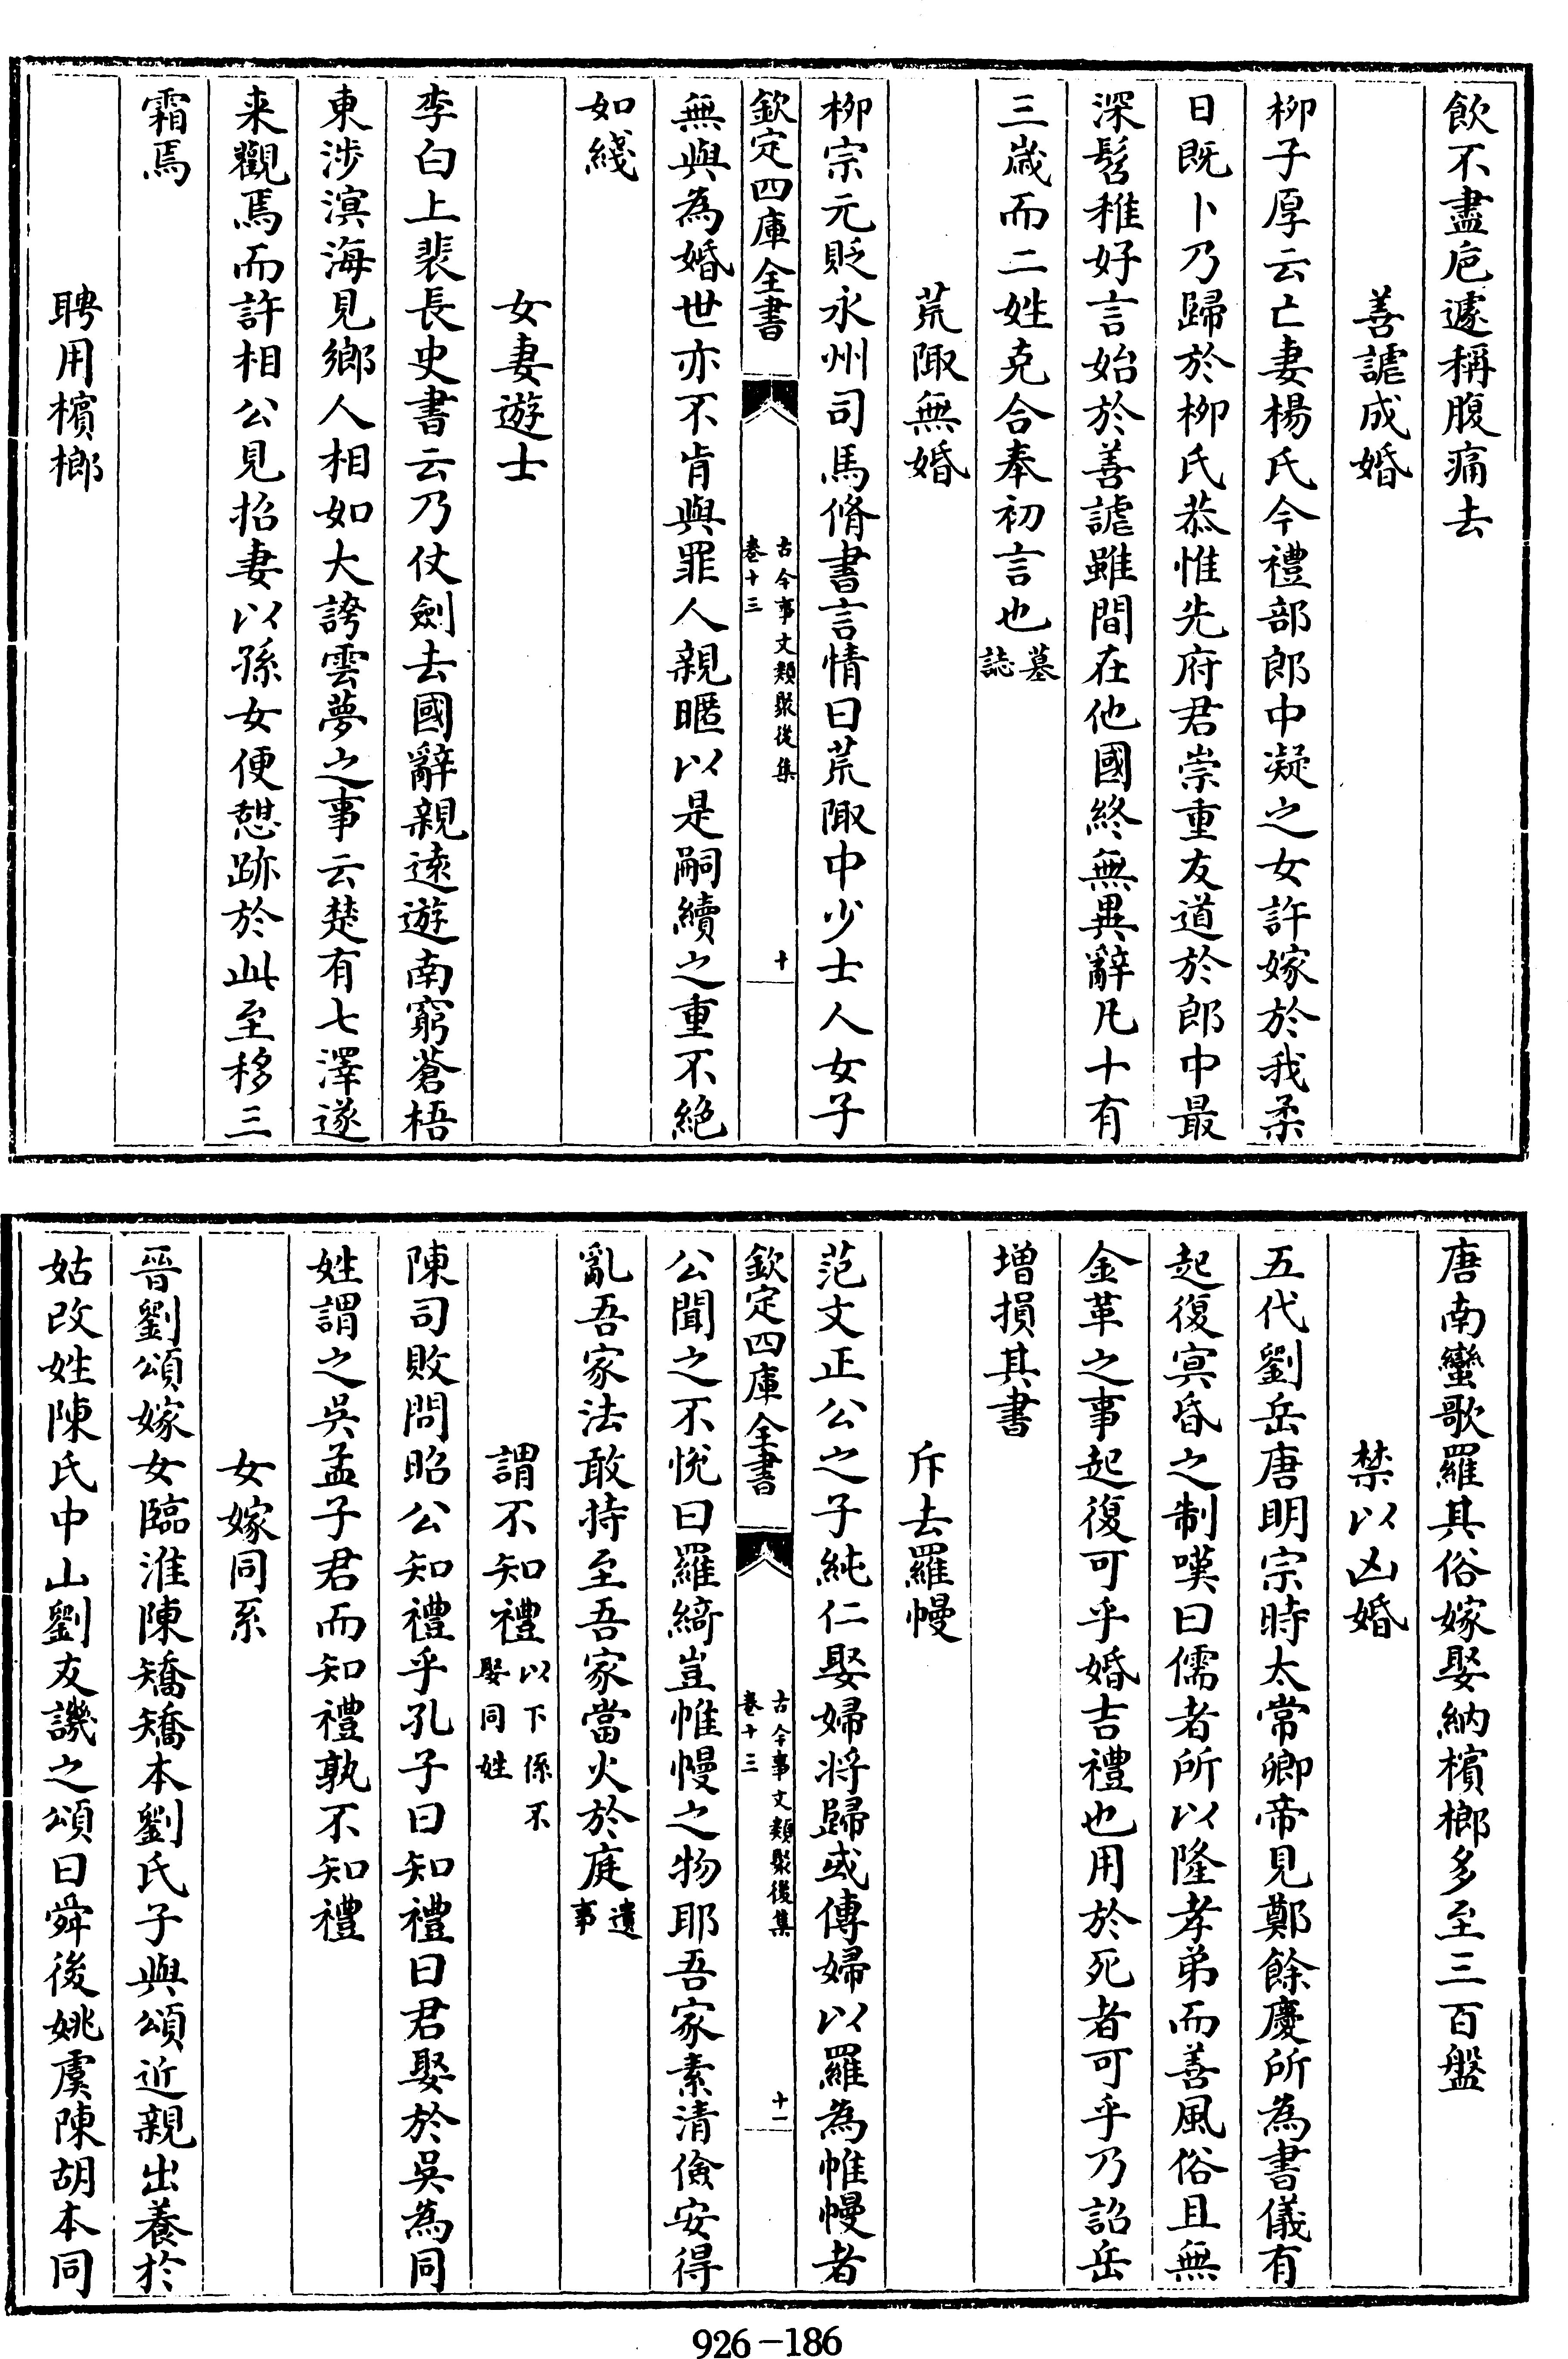 飲不盡巵遽稱腹痛去
善謔成婚
柳子厚云亡妻楊氏今禮部郎中凝之女許嫁於我柔
日既卜乃歸於柳氏恭惟先府君崇重友道於郎中最
深髫稚好言始於善謔雖間在他國終無異辭凡十有
三歲而二姓克合奉初言也墓誌
荒陬無婚
柳宗元貶永州司馬脩書言情曰荒陬中少士人女子
欽定四庫全書
古今事文類聚後集
卷十三
十
無與為婚世亦不肯與罪人親暱以是嗣續之重不絶
如綫
女妻遊士
李白上裴長史書云乃仗劍去國辭親逺遊南窮蒼梧
東涉溟海見鄉人相如大誇雲夢之事云楚有七澤遂
来觀焉而許相公見招妻以孫女便憇跡於此至移三
霜焉
聘用檳榔
唐南蠻歌羅其俗嫁娶納檳榔多至三百盤
禁以凶婚
五代劉岳唐明宗時太常卿帝見鄭餘慶所為書儀有
起復冥昏之制嘆曰儒者所以隆孝弟而善風俗且無
金革之事起復可乎婚吉禮也用於死者可乎乃詔岳
増損其書
斥去羅幔
范文正公之子純仁娶婦将歸或傳婦以羅為帷幔者
欽定四庫全書
古今事文類聚後集
卷十三
十一
公聞之不悅曰羅綺豈帷幔之物耶吾家素清儉安得
亂吾家法敢持至吾家當火於庭遺事
謂不知禮以下係不娶同姓
陳司敗問昭公知禮乎孔子曰知禮曰君娶於吳為同
姓謂之吳孟子君而知禮孰不知禮
女嫁同系
晉劉頌嫁女臨淮陳矯矯本劉氏子與頌近親出養於
姑改姓陳氏中山劉友譏之頌曰舜後姚虞陳胡本同
926-186